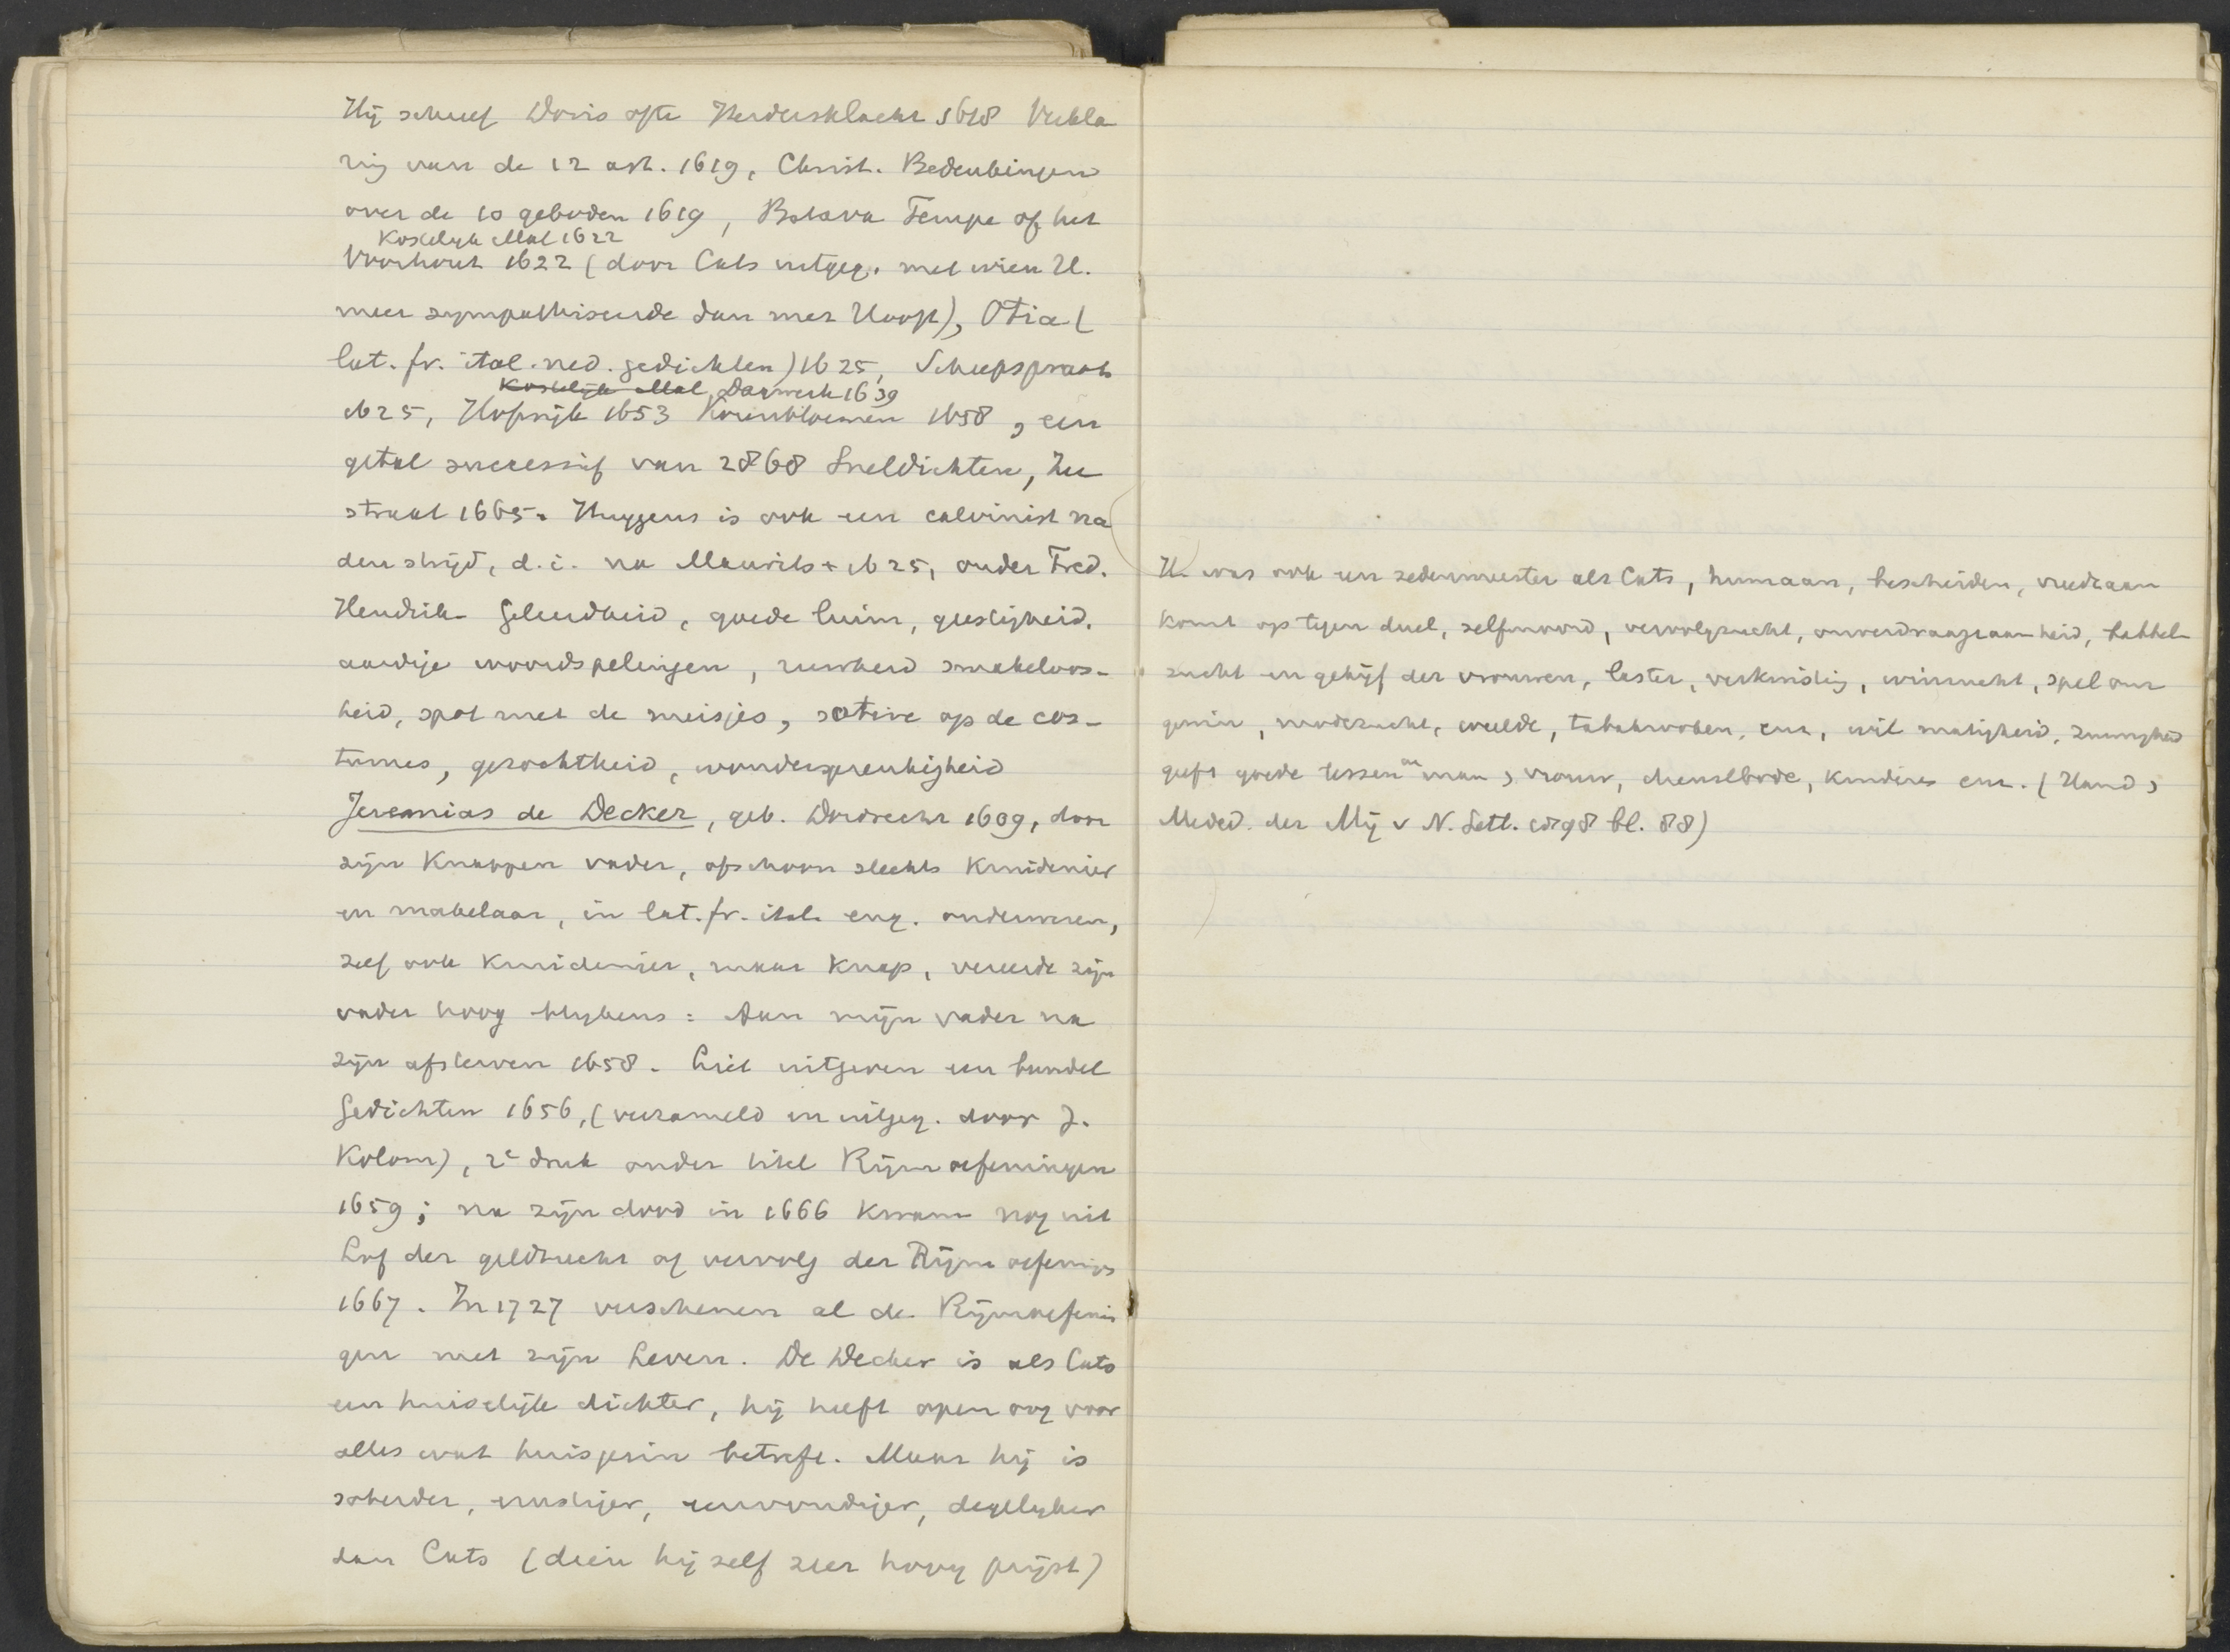 Hij schreef Doris ofte Herdersklacht 1618 Verkla
ring van de 12 art. 1619, Christ. Bedenkingen
over de 10 geboden 1619, Batava Tempe of het
Kostelyk Mal 1622
Voorhout 1622 (door Cats uitgeg. met wien H.
meer sympathiseerde dan met Hooft), Otia (
lat. fr. ital. ned. gedichten) 1625, Scheepspraat
Kostelijk Mal, Dagwerk 1639
1625, Hofwijk 1653 Korenbloemen 1658, een
getal successief van 2868 Sneldichten, Zee
straat 1665. Huygens is ook een calvinist na
den strijd, d.i. na Maurits + 1625, onder Fred.
Hendrik. Geleerdheid, goede luim, geestigheid.
aardige woordspelingen, ruwheid smakeloos-
heid, spot met de meisjes, satire op de cos-
tumes, gezochtheid, wonderspreukigheid
Jeremias de Decker, geb. Dordrecht 1609, door
zijn knappen vader, ofschoon slechts kruidenier
en makelaar, in lat. fr. ital. eng. onderwezen,
zelf ook kruidenier, maar knap, vereerde zijn
vader hoog blykens: Aan mijn vader na
zijn afsterven 1658. Liet uitgeven een bundel
Gedichten 1656, (verzameld en uitgeg. door J.
Kolom), 2e druk onder titel Rijmoefeningen
1659; na zijn dood in 1666 kwam nog uit
Lof der geldzucht of vervolg der Rijmoefenigs
1667. In 1727 verschenen al de Rijmoefenin
gen met zijn Leven. De Decker is als Cats
een huiselijk dichter, hij heeft open oog voor
alles wat huisgezin betreft. Maar hij is
soberder, ernstiger, eenvoudiger, degelyker
dan Cats (dien hij zelf zeer hoog prijst)
H. was ook een zedenmeester als Cats, humaan, bescheiden, vreedzaam
komt op tegen duel, zelfmoord, vervolgzucht, onverdraagzaamheid, babbel-
zucht en gekijf der vrouwen, laster, verkwisting, winzucht, spel om
gewin, modezucht, weelde, tabakrooken, enz, wil matigheid, zuinigheid
geeft goede lessen aan man, vrouw, dienstbode, kinderen enz. (Hand,
Meded. der Mij v N. Lett. 1898 bl. 88)